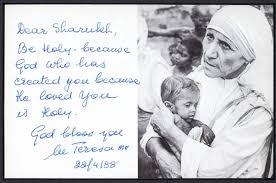 Dear Sharukh,
Be Holy because
God who has
created you because
He loved You
is Holy.
God bless you
lu Teresa mc
22/4/88